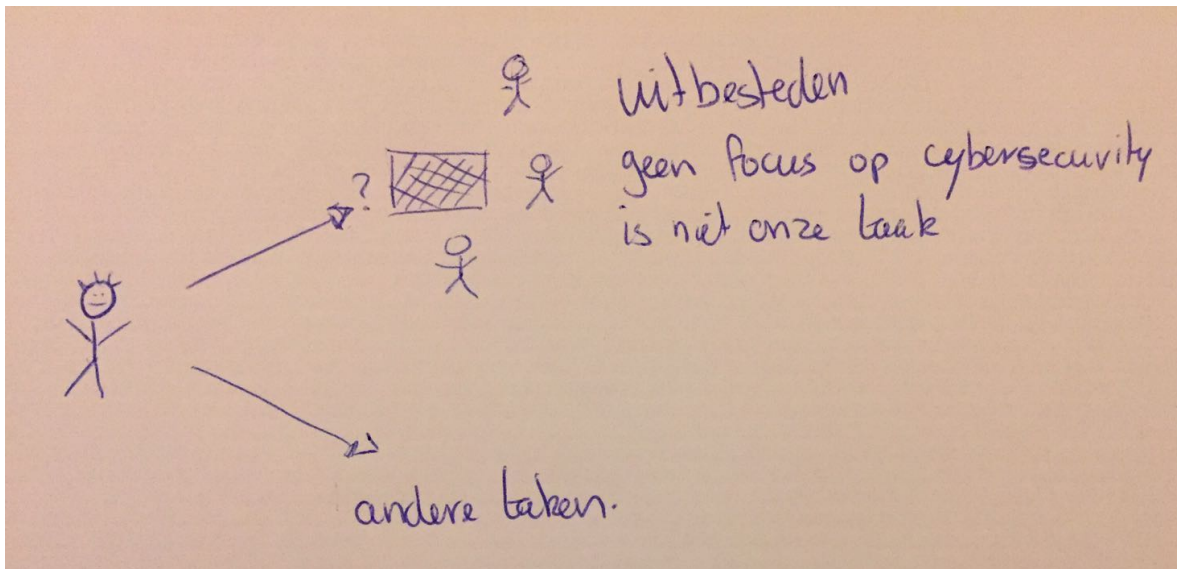 uitbesteden
geen focus op cybersecurity
is niet onze taak
?
andere taken.